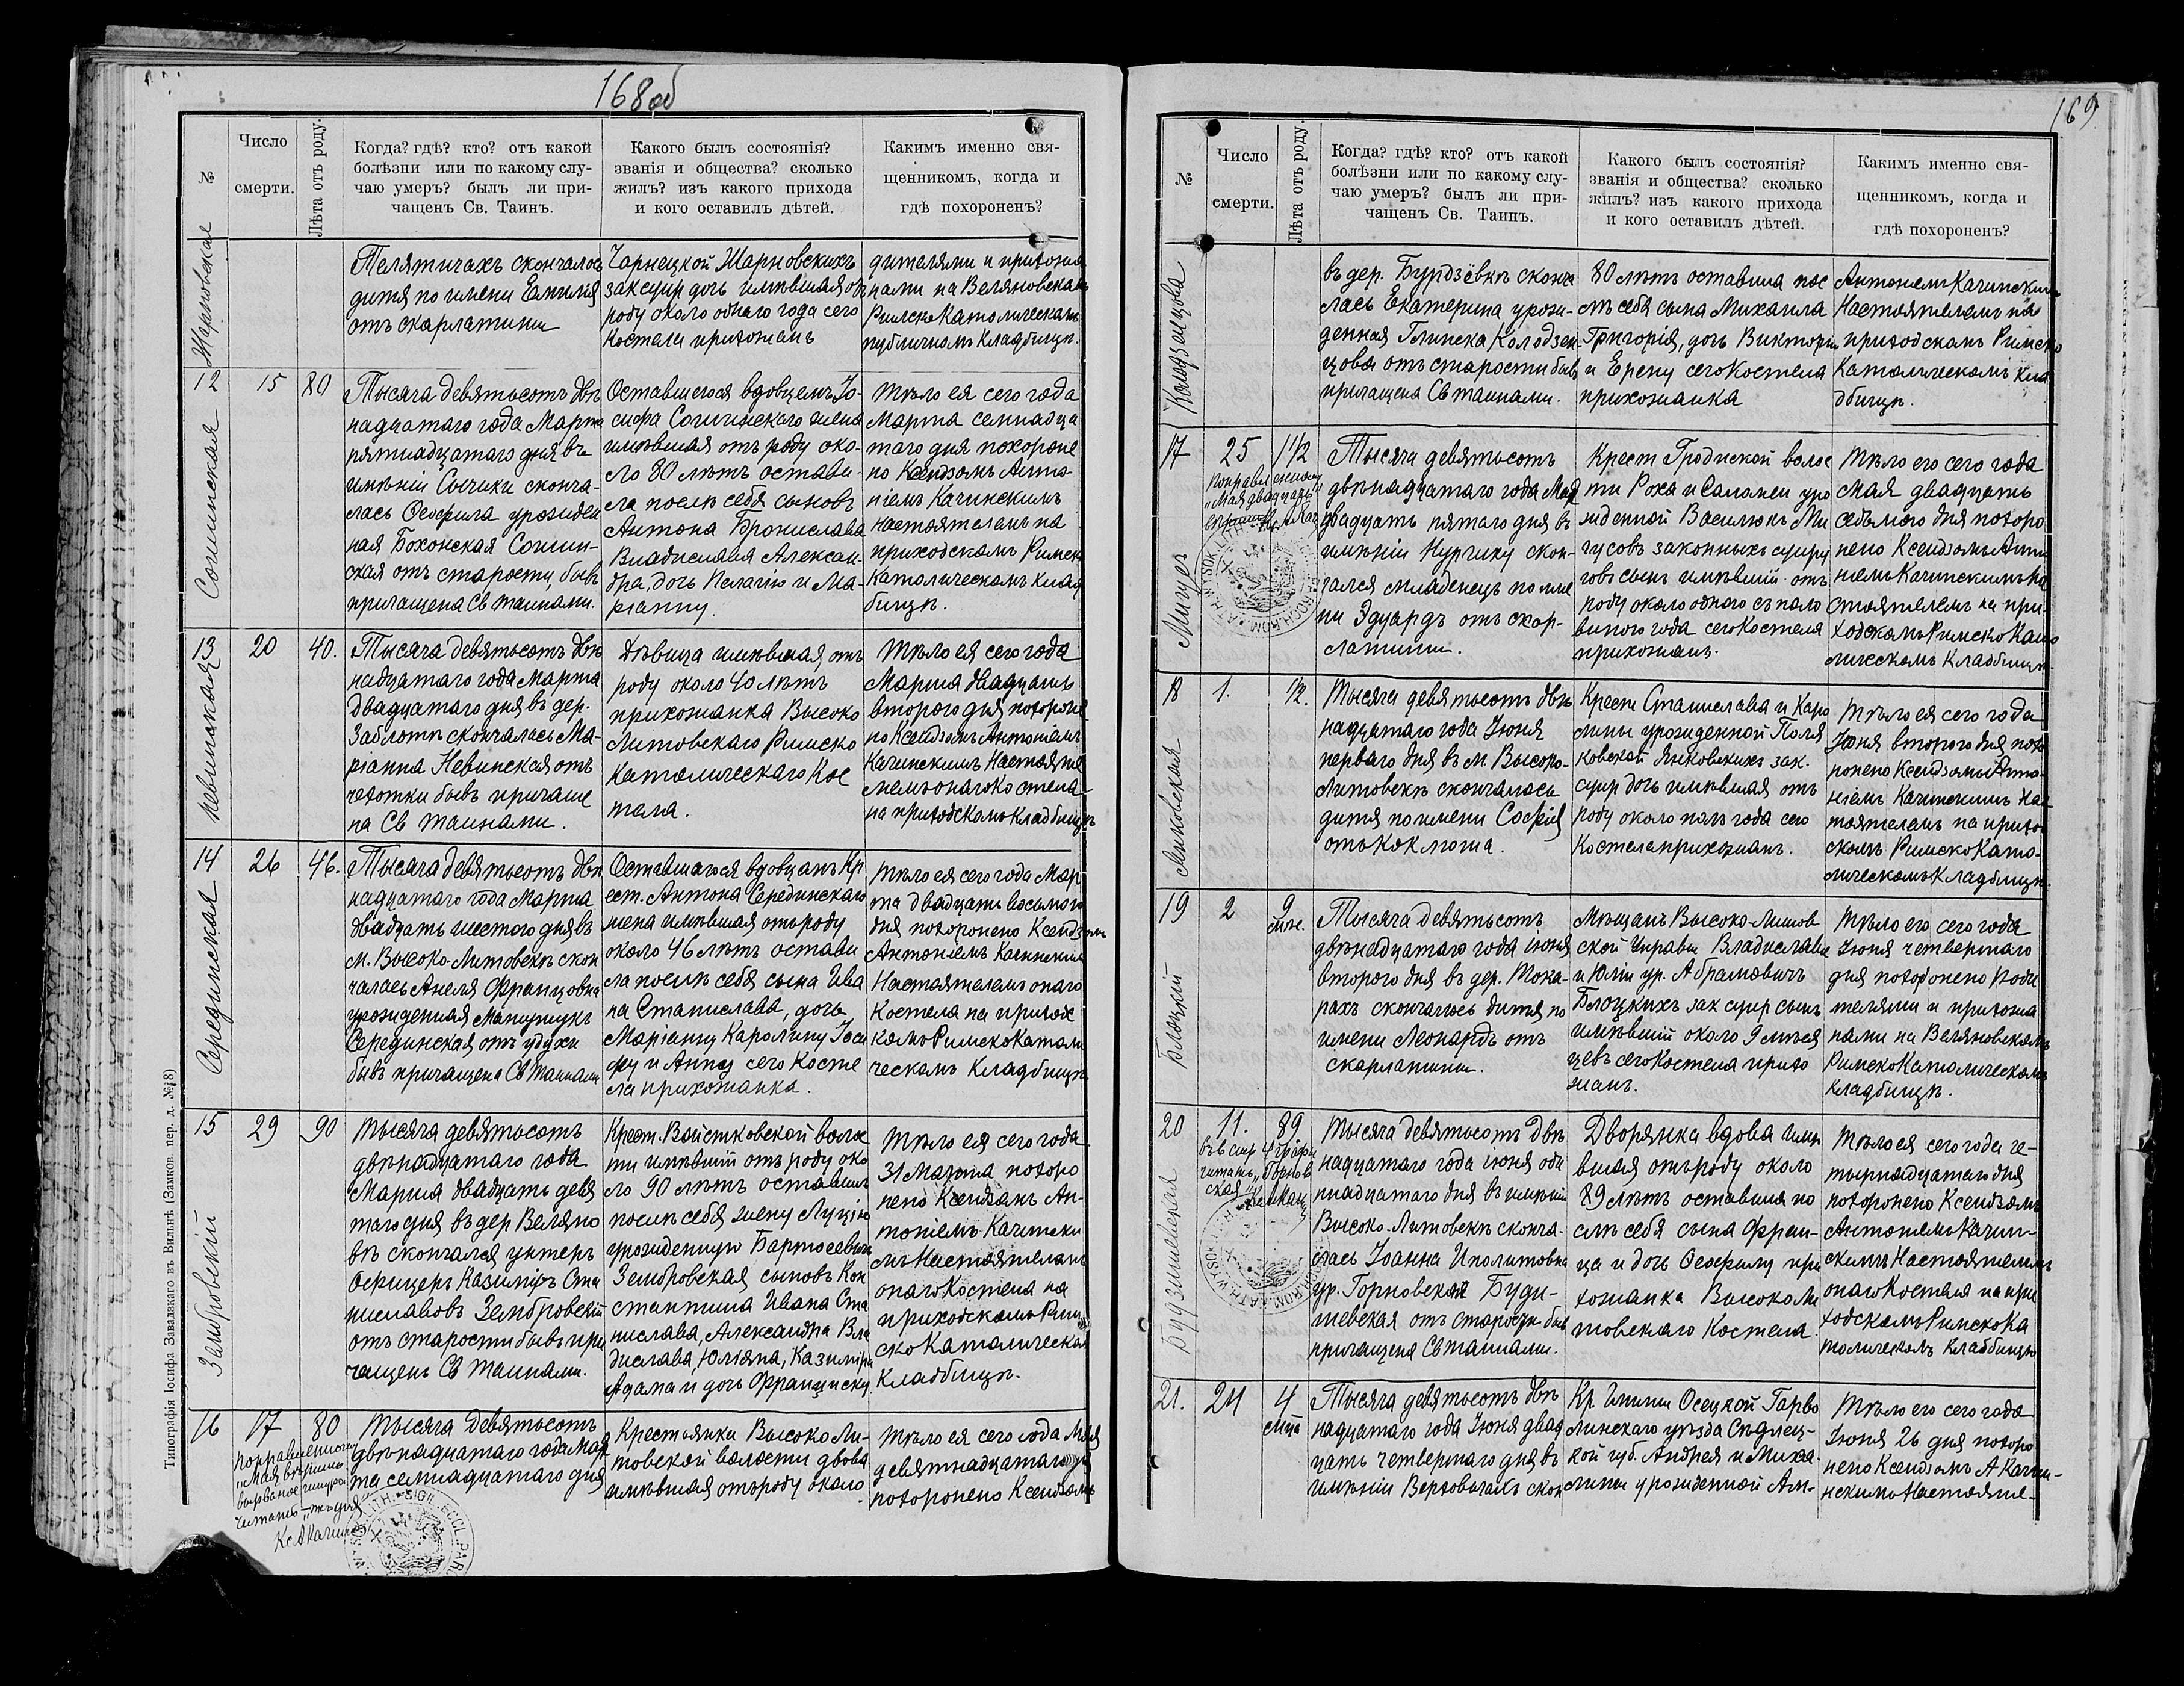 168об
№
Число
смерти.
Лѣта отъ роду.
Когда? гдѣ? кто? отъ какой
болѣзни или по какому слу-
чаю умеръ? былъ ли при-
чащенъ Св. Таинъ.
Какого былъ состоянія?
званія и общества? сколько
жилъ? изъ какого прихода
и кого оставилъ дѣтей.
Какимъ именно свя-
щенникомъ, когда и
гдѣ похороненъ?
Жарновская
Пелятичахъ скончалось
дитя по имени Емилія
отъ скарлатины
Чарнецкой Жарновскихъ
зак супр дочь имѣвшая отъ
роду около одного года сего
Костела прихожанъ
дителями и прихожа
нами на Веляновскамъ
РимскоКатолическамъ
публичномъ Кладбищѣ.
12
Сошинская
15
80
Тысяча девятьсотъ двѣ
надцатаго года Марта
пятнадцатаго дня въ
имѣніи Сычики сконча-
лась Ѳеофила урожден
ная Боxонская Сошин-
ская отъ старости, бывъ
причащена Св таинами.
Оставшегося вдовцемъ Іо-
сифа Сошинскаго жена
имѣвшая отъ роду око-
ло 80 лѣтъ остави-
ла послѣ себя сыновъ
Антона Бронислава
Владислава Алексан-
дра, дочь Пелагію и Ма-
ріанну.
Тѣло ея сего года
Марта семнадца
таго дня похороне
но Ксендзомъ Анто-
ніемъ Качинскимъ
Настоятелемъ на
приходскамъ Римско
Католическомъ Клад
бищѣ.
13
Невинская
20
40.
Тысяча девятьсотъ двѣ
надцатаго года Марта
двадцатаго дня въ дер.
Заблотѣ скончалась Ма-
ріанна Невинская отъ
чехотки бывъ причаще
на Св таинами.
Дѣвица имѣвшая отъ
роду около 40 лѣтъ
прихожанка Высоко
Литовскаго Римско
Католическаго Кос
тела.
Тѣло ея сего года
Марта двадцать
второго дня похороне
но Ксендзомъ Антоніемъ
Качинскимъ Настояте
лемъ онаго Костела
на приходскомъ Кладбищѣ
14
Серединская
26
46.
Тысяча девятьсотъ двѣ
надцатаго года Марта
двадцать шестого дня въ
м. Высоко-Литовскѣ скон
чалась Анеля Францовна
урожденная Манчукъ
Серединская отъ удухи
бывъ причащена Св Таинами
Оставшагося вдовцамъ Кр
ест. Антона Серединскаго
жена имѣвшая отъ роду
около 46 лѣтъ остави
ла послѣ себя сына Ива
на Станислава, дочь
Маріанну Каролину Іози
фу и Анну сего Косте
ла прихожанка.
Тѣло ея сего года Мар
та двадцать восьмого
дня похоронено Ксендзомъ
Антоніемъ Качинскимъ
Настоятелемъ онаго
Костела на приход
скомъ РимскоКатоли
ческомъ Кладбищѣ
15
Зембровскій
29
90
Тысяча девятьсотъ
двѣнадцатаго года
Марта двадцать девя
таго дня въ дер Веляно
вѣ скончался унтеръ
Офицеръ Казиміръ Ста
ниславовъ Зембровскій
отъ старости бывъ при
чащенъ Св Таинами.
Крест. Войстковской волос
ти имѣвшій отъ роду око
ло 90 лѣтъ оставилъ
послѣ себя жену Луцію
урожденную Бартосевичъ
Зембровская сыновъ Кон
стантина Ивана Ста
нислава, Александра Вла
дислава, Юліяна, Казиміра
Адама и дочь Франциску
Тѣло ея сего года
31 Марта похоро
нено Ксендзамъ Ан-
тоніемъ Качински
мъ Настоятелемъ
онаго Костела на
приходскомъ Рим
скоКатолическомъ
Кладбищѣ.
16
17
80
Поправленному
„Мая вѣрить
вырваное
читать „тъ дня
Кс А Качинск
Тысяча девятьсотъ
двѣнадцатаго года Мар
та семнадцатаго дня
Крестьянка Высоко Ли-
товской волости вдова
имѣвшая отъ роду около
Тѣло ея сего года Мая
девятнадцатаго дня
похоронено Ксендзомъ
SIGIL. ECCL. PAR
Типографія Іосифа Завадзкаго въ Вильнѣ (Замков. пер. д. № 8)
169
№
Число
смерти.
Лѣта отъ роду.
Когда? гдѣ? кто? отъ какой
болѣзни или по какому слу-
чаю умеръ? былъ ли при-
чащенъ Св. Таинъ.
Какого былъ состоянія?
званія и общества? сколько
жилъ? изъ какого прихода
и кого оставилъ дѣтей.
Какимъ именно свя-
щенникомъ, когда и
гдѣ похороненъ?
Колодзенцова
въ дер. Бурдзёвкѣ сконча
лась Екатерина урож-
денная Глинска Колодзен
цова отъ старости бывъ
причащена Св таинами.
80 лѣтъ оставила пос
лѣ себя сына Михаила
Григорія, дочь Викторію
и Ерену сего Костела
прихожанка
Антоніемъ Качинскимъ
Настоятелемъ на
приходскамъ Римско
Католическомъ кла
дбищѣ.
17
Мигусъ
25
1 1/2
Поправленному
„Мая двадцать"
вѣрить
Тысяча девятьсотъ
двѣнадцатаго года Мая
двадцать пятаго дня въ
имѣніи Нурчику скон-
чался младенецъ по име
ни Эдуардъ отъ скар-
латины.
Крест Гродиской волос
ти Роха и Саломеи уро
жденной Василюкъ Ми
гусовъ законныхъ супру
говъ сынъ имѣвшій отъ
роду около одного съ поло
виного года сего Костела
прихожанъ.
Тѣло его сего года
Мая двадцать
седьмого дня похоро
нено Ксендзомъ Анто
ніемъ Качинскимъ На
стоятелемъ на при-
ходскомъ РимскоКато
лическомъ Кладбищѣ.
18
Янковская
1.
1/2.
Тысяча девятьсотъ двѣ
надцатаго года Іюня
перваго дня въ м Высоко-
Литовскѣ скончалась
дитя по имени Софія
отъ Коклюша.
Крест Станислава и Каро
лины урожденной Поля
ковской Янковскихъ зак.
супр дочь имѣвшая отъ
роду около полъ года сего
Костела прихожанъ.
Тѣло ея сего года
Іюня второго дня похо
ронено Ксендзомъ Анто-
ніемъ Качинскимъ Нас
тоятелемъ на приход
скомъ РимскоКато-
лическомъ Кладбищѣ.
19
Блоцкій
2
9
мѣс.
Тысяча девятьсотъ
двѣнадцатаго года іюня
второго дня въ дер. Тока-
рахъ скончалось дитя по
имени Леонардъ отъ
скарлатины.
Мѣщанъ Высоко-Литов
ской Управы Владислава
и Юліи ур. Абрамовичъ
Блоцкихъ зак супр сынъ
имѣвшій около 9 мѣся
цевъ сего Костела прихо
жанъ.
Тѣло его сего года
Іюня четвертаго
дня похоронено роди
телями и прихожа
нами на Веляновскамъ
РимскоКатолическомъ
Кладбищѣ.
20
11.
89
Тысяча девятьсотъ двѣ
надцатаго года іюня оди
надцатаго дня въ имѣніи
Высоко-Литовскѣ сконча-
лась Іоанна Иполитовна
ур. Горновская Буди-
шевская отъ старости бывъ
причащена Св таинами.
Дворянка вдова имѣ
вшая отъ роду около
89 лѣтъ оставила по
слѣ себя сына Фран-
ца и дочь Ѳеофилу при
хожанка Высоко Ли
товскаго Костела.
Тѣло ея сего года че-
тырнадцатаго дня
похоронено Ксендзомъ
Антоніемъ Качин-
скимъ Настоятелемъ
онаго Костела на при
ходскамъ РимскоКа
толическомъ Кладбищѣ
21.
24
4
Тысяча девятьсотъ двѣ
надцатаго года Іюня двад
цать четвертаго дня въ
имѣніи Верховичахъ скон
Кр. Гмины Осецкой Гарво
линскаго уѣзда Сѣдлец-
кой губ. Андрея и Миха
лины урожденной Ам-
Тѣло его сего года
Іюня 26 дня похоро
нено Ксендзомъ А Качи-
нскимъ Настояте-